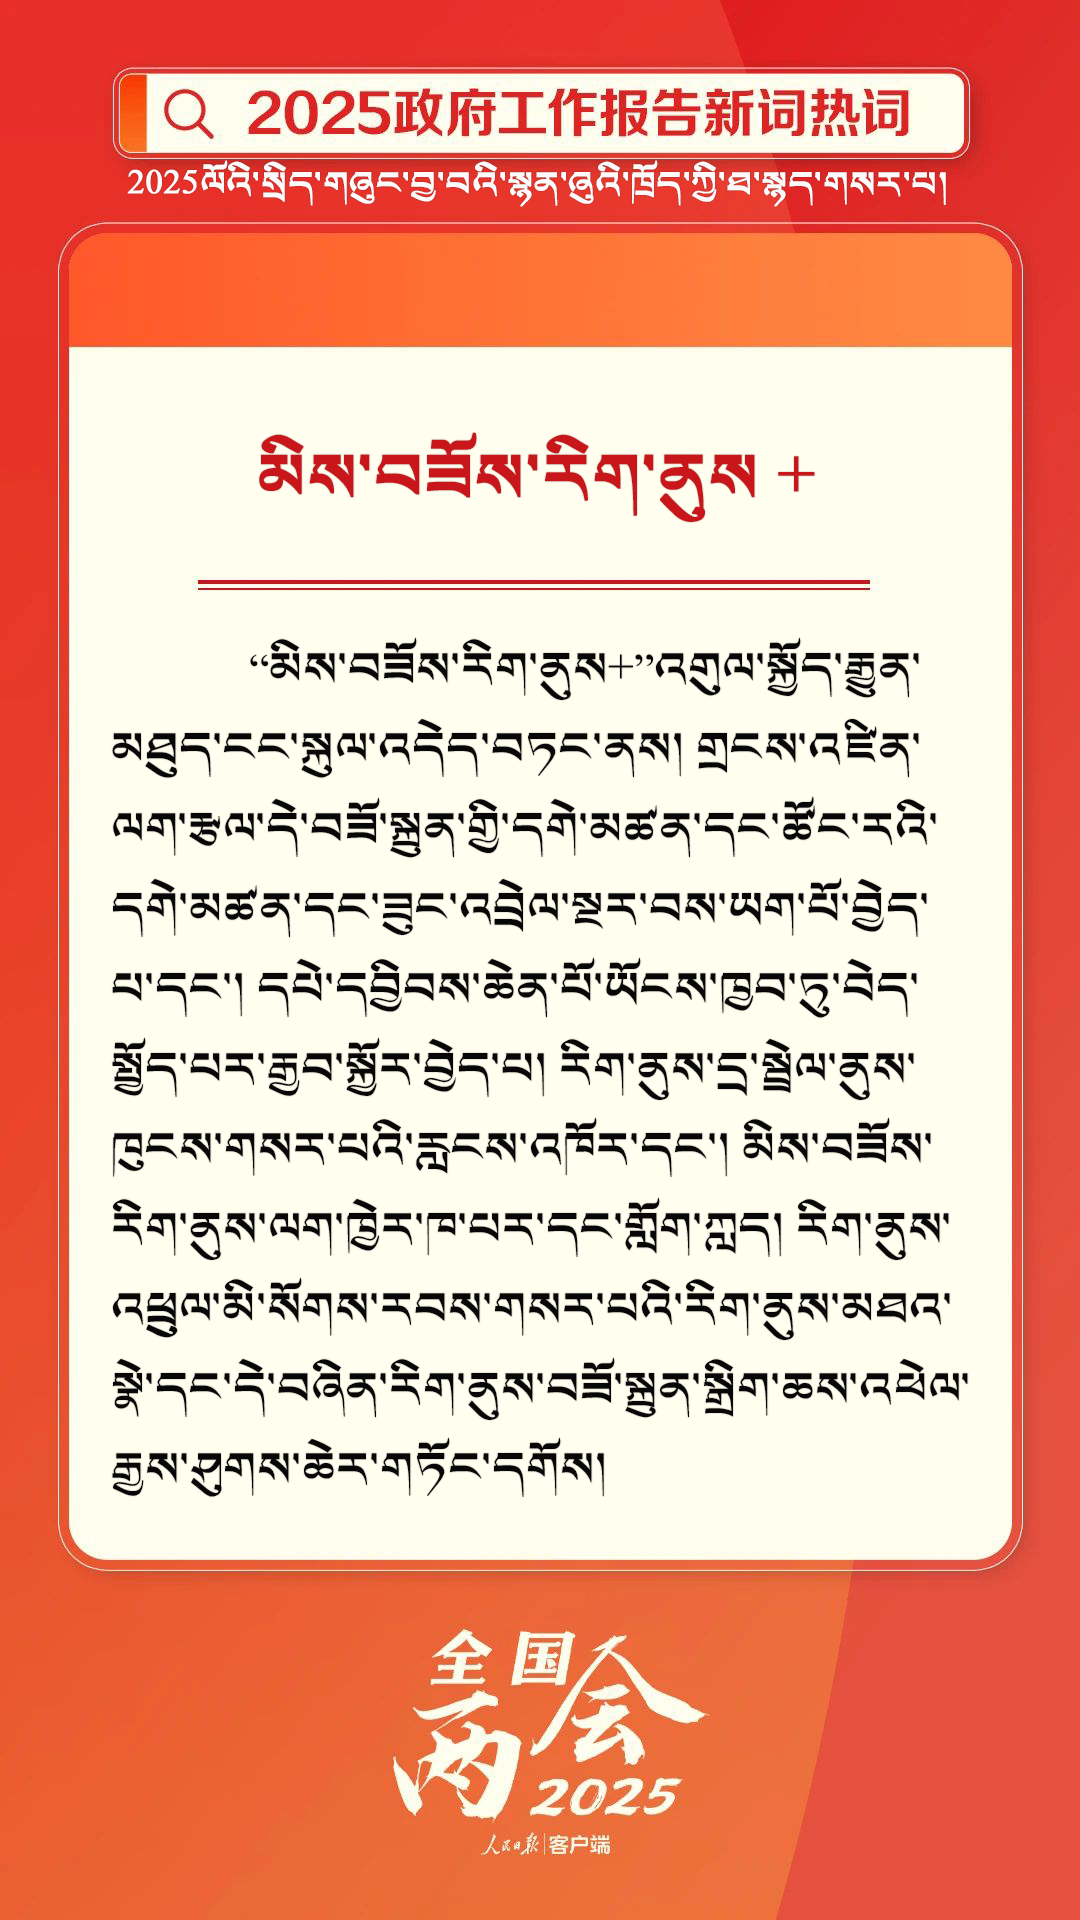 2025政府工作报告新词热词
2025ལོའི་སྲིད་གཞུང་བྱ་བའི་སྙན་ཞུའི་ཁྲོད་ཀྱི་ཐ་སྙད་གསར་པ།
མིས་བཟོས་རིག་ནུས +
“མིས་བཟོས་རིག་ནུས+”འགུལ་སྐྱོད་རྒྱུན་
མཐུད་ངང་སྐུལ་འདེད་བཏང་ནས། གྲངས་འཛིན་
ལག་རྩལ་དེ་བཟོ་སྐྲུན་གྱི་དགེ་མཚན་དང་ཚོང་རའི་
དགེ་མཚན་དང་ཟུང་འབྲེལ་སྔར་བས་ཡག་པོ་བྱེད་
པ་དང་། དཔེ་དབྱིབས་ཆེན་པོ་ཡོངས་ཁྱབ་ཏུ་བེད་
སྤྱོད་པར་རྒྱབ་སྐྱོར་བྱེད་པ། རིག་ནུས་དྲ་སྦྲེལ་ནུས་
ཁུངས་གསར་པའི་རླངས་འཁོར་དང་། མིས་བཟོས་
རིག་ནུས་ལག་ཁྱེར་ཁ་པར་དང་གློག་ཀླད། རིག་ནུས་
འཕྲུལ་མི་སོགས་རབས་གསར་པའི་རིག་ནུས་མཐའ་
སྣེ་དང་དེ་བཞིན་རིག་ནུས་བཟོ་སྐྲུན་སྒྲིག་ཆས་འཕེལ་
རྒྱས་ཤུགས་ཆེར་གཏོང་དགོས།
全国
两会
2025
人民日报 客户端